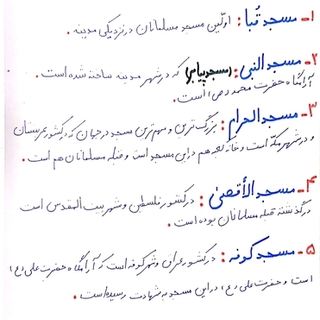 ۱- مسجد قُبا : اوّلین مسجد مسلمانان در نزدیکی مدینه .
۲- مسجد النبی : (مسجد پیامبر) که در شهر مدینه ساخته شده است .
آرامگاه حضرت محمد (ص) است .
۳- مسجد الحرام : بزرگ‌ترین و مهم‌ترین مسجد در جهان که در کشور عربستان
و در شهر مکّه است و خانه کعبه هم در این مسجد است و قبله مسلمانان هم است .
۴- مسجد الأقصیٰ : در کشور فلسطین و شهر بیت المقدس است
در گذشته قبله مسلمانان بوده است .
۵- مسجد کوفه : در کشور عراق و شهر کوفه است که آرامگاه حضرت علی (ع)
است و حضرت علی (ع) در این مسجد به شهادت رسیده است .